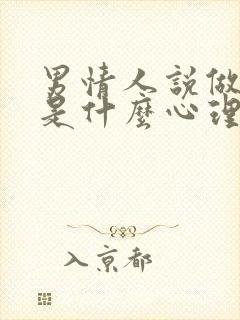 男情人説做
是什麼心理
入京都